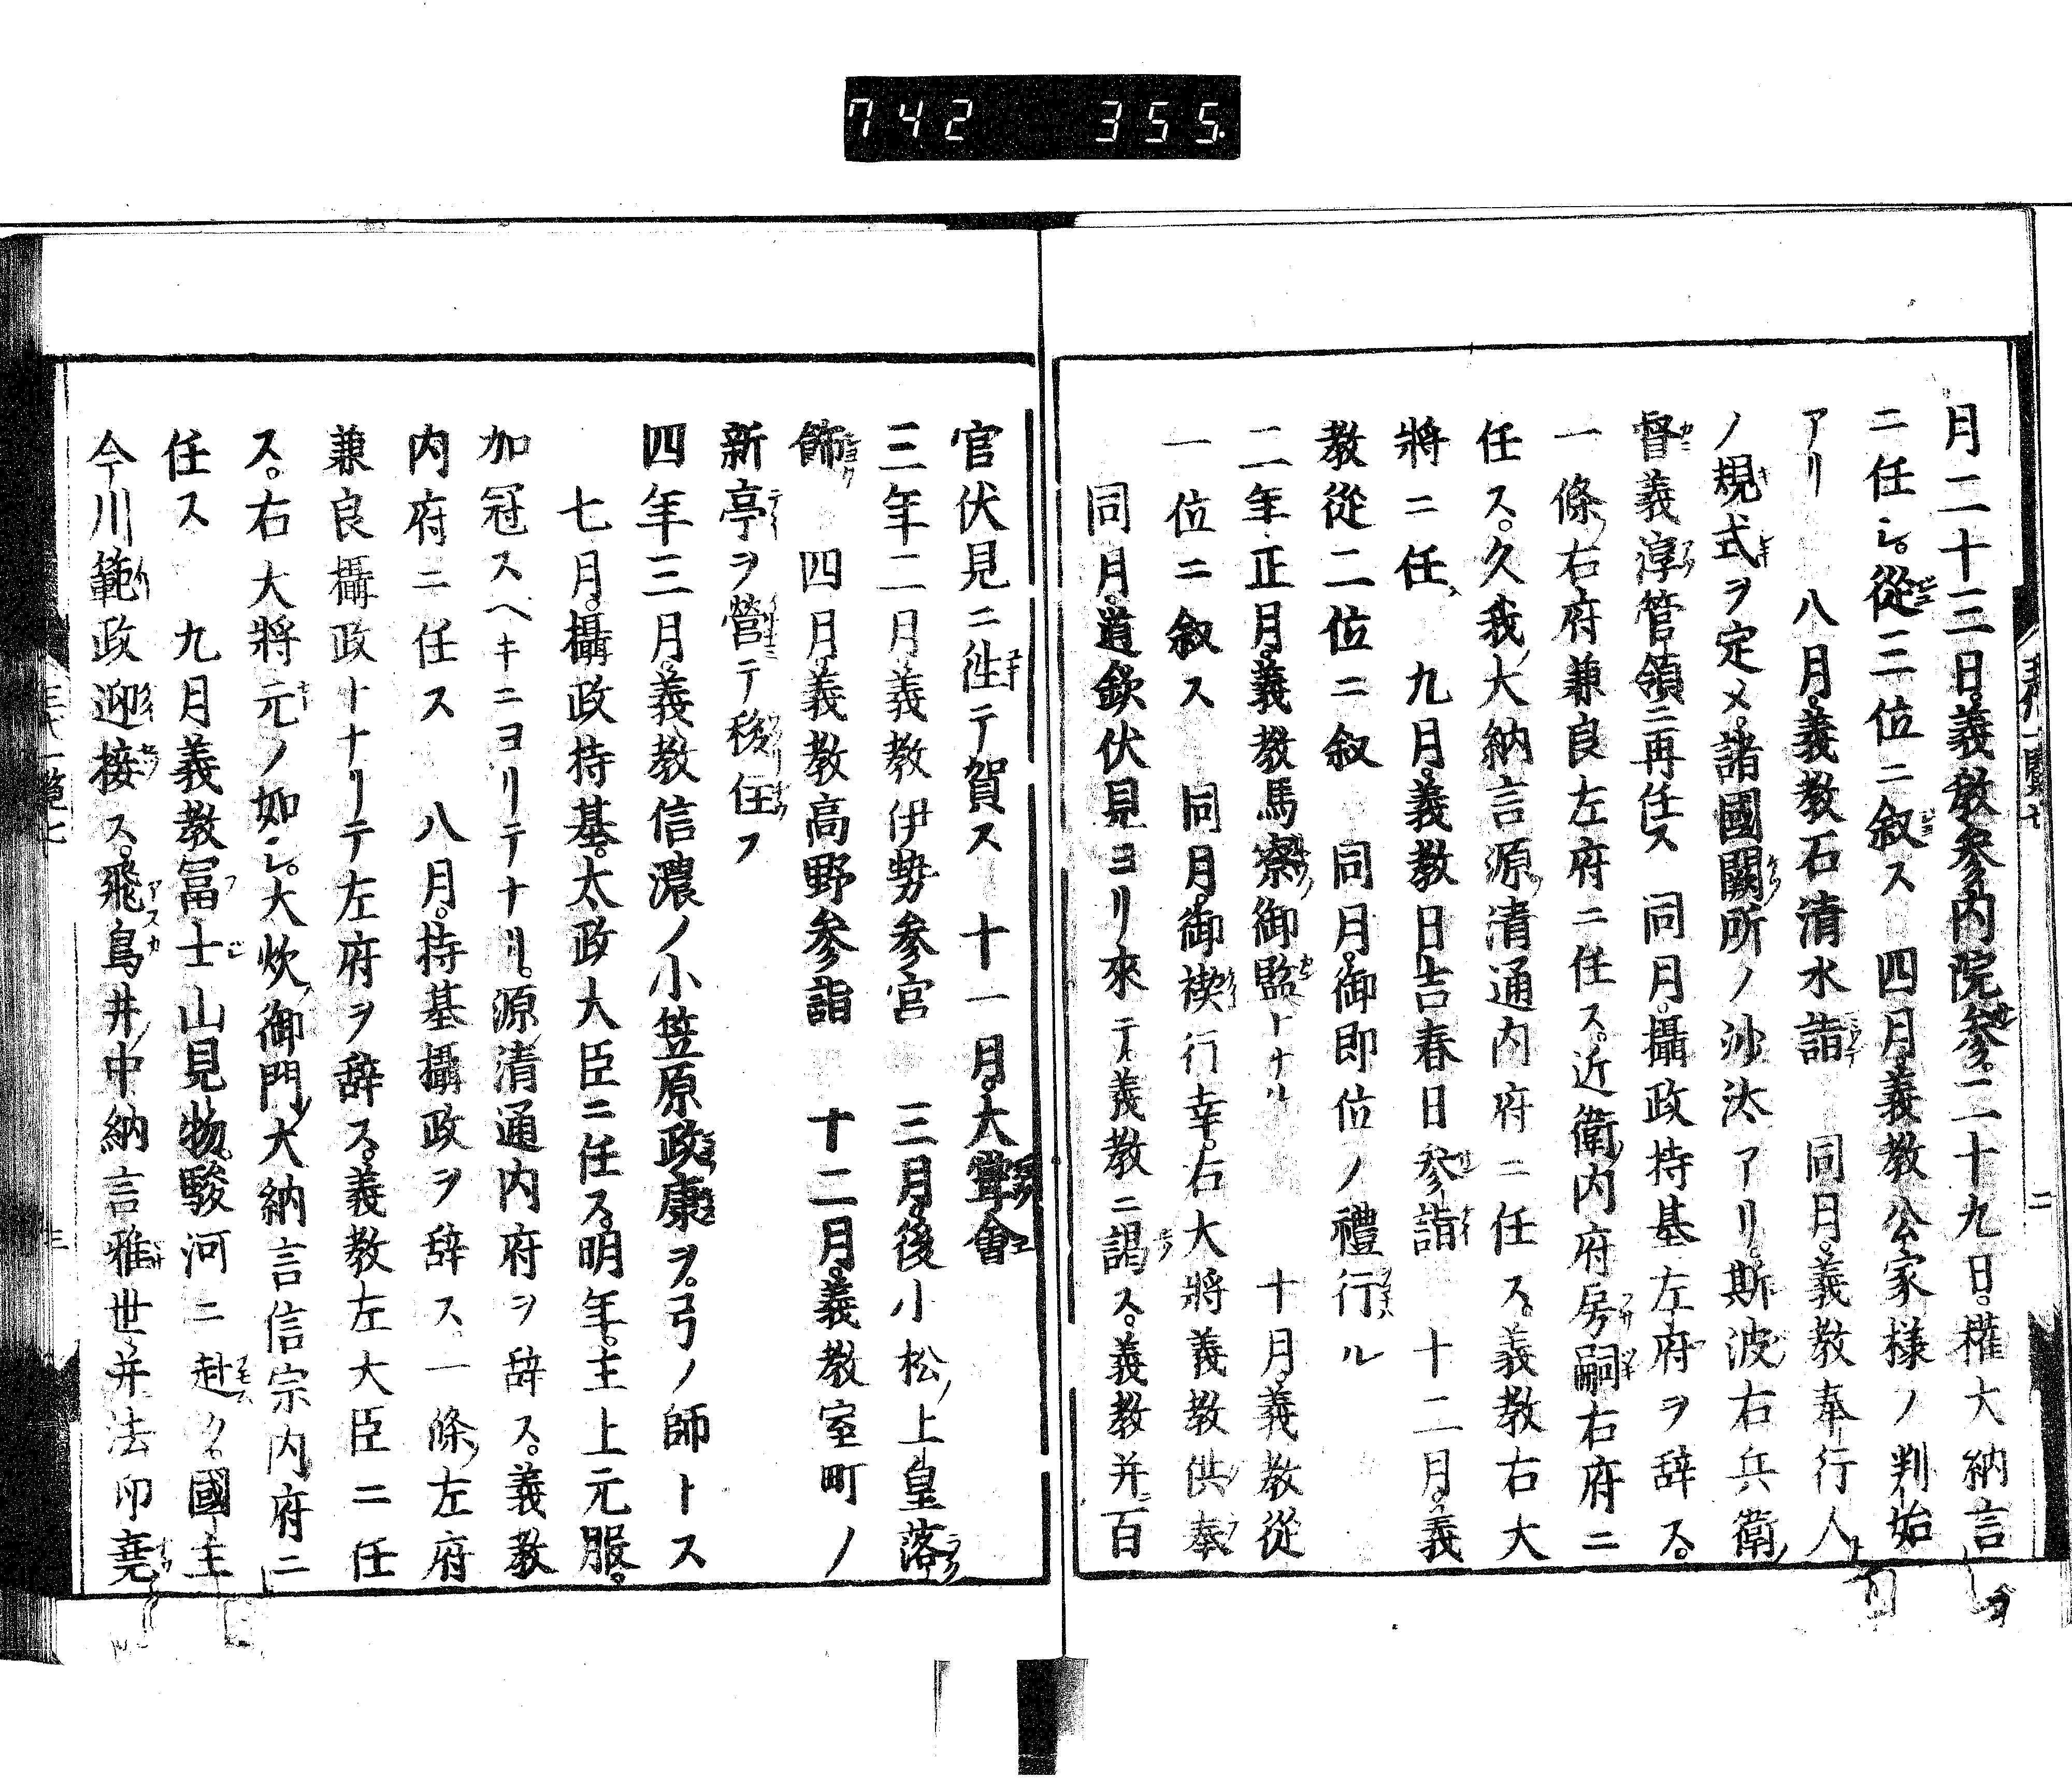 742 355
月二十三日義教参内院参二十九日權大納言
ニ任シ從三位ニ叙ス 四月義教公家様ノ判始
アリ 八月義教石清水詣 同月義教奉行人
ノ規式ヲ定メ諸國闕所ノ沙汰アリ斯波右兵衛
督義淳管領ニ再任ス 同月攝政持基左府ヲ辞ス
一條右府兼良左府ニ任ス近衛内府房嗣右府ニ
任ス久我大納言源清通内府ニ任ス義教右大
將ニ任 九月義教日吉春日参詣 十二月義
教從二位ニ叙 同月御即位ノ禮行ル
二年正月義教馬寮御監トナル 十月義教從
一位ニ叙ス 同月御禊行幸右大將義教供奉
同月道欽伏見ヨリ來テ義教ニ謁ス義教并百
官伏見ニ徃テ賀ス 十一月大嘗會
三年二月義教伊勢参宮 三月後小松上皇落
飾 四月義教高野参詣 十二月義教室町ノ
新亭ヲ營テ移住フ
四年三月義教信濃ノ小笠原政康ヲ弓ノ師トス
七月攝政持基太政大臣ニ任ス明年主上元服
加冠スヘキニヨリテナリ源清通内府ヲ辞ス義教
内府ニ任ス 八月持基攝政ヲ辞ス一條左府
兼良攝政トナリテ左府ヲ辞ス義教左大臣ニ任
ス右大將元ノ如シ大炊御門大納言信宗内府ニ
任ス 九月義教冨士山見物駿河ニ赴ク國主
今川範政迎接ス飛鳥井中納言雅世并法印堯